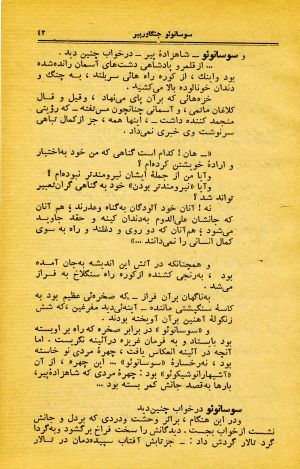 سوسانوئو جنگاورپیر ۴۳
و سوسانوئو ــ شاهزادهٔ پیر ــ درخواب چنین دید.
... از قلمرو پادشاهی دشت‌های آسمان رانده‌شده
بود و اینك، از کوره راه هائی سربلند، به چنگ و
دندان خونالوده بالا می‌کشید.
خزه‌هائی که برآن پای می‌نهاد، وقیل و قال
کلاغان ماتمی، و آسمانی چنانچون مس تفته ــ که رؤیتی
منجمد کننده داشت ــ، اینها همه، جز از کمال تباهی
سرنوشت وی خبری نمی‌داد.
«ــ هان! کدام است گناهی که من خود به‌اختیار
و ارادهٔ خویشتن کرده‌ام؟
وآیا من از جملهٔ ایشان نیرومندتر نبوده‌ام؟
وآیا «نیرومندتر بودن» خود به گناهی گران تعبیر
تواند شد؟
نه! آنان خود آلودگان به‌گناه وغدرند؛ هم آنان
که جانشان علی‌الدوام به‌دندان کینه و حقد جاوید
می‌شود؛ هم‌آنان که دو روی و دغلند و راه به سوی
کمال انسانی را نمی‌دانند ...»
و همچنانکه در آتش این اندیشه به‌جان آمده
بود، به‌رنجی کشنده ازکوره راه سنگلاخ به فراز
می‌شد.
به‌ناگهان برآن فراز ــ که صخره‌ئی عظیم بود به
کاسهٔ سنگپشتی ماننده ــ آینه‌ئی‌دید مفرغین، که شش
زنگولهٔ آهنین برآن آویخته بودند.
و «سوسانوئو» در برابر صخره که راه بر اوبسته
بود بایستاد و به فرمان غریزه درآینه نگریست. اما
آنچه در آئینه انعکاس یافت، چهرهٔ مردی نو خاسته
بود، نه‌رخسارهٔ «سوسانوئو» ... این چهره، از آن
«آشیهارانوشیکوئو» بود: چهرهٔ مردی که شاهزادهٔ‌پیر،
بارها به‌قصد جانش کمر بسته بود ...
سوسانوئو درخواب چنین‌دید
ودر این هنگام، براثر وحشت ودردی که بردل و جانش
نشست ازخواب بجست. دیدگانش را سخت فراخ برگشود وبه‌گردا
گرد تالار گردش داد: ــ جزتابش آفتاب سپیده‌دمان در تالار